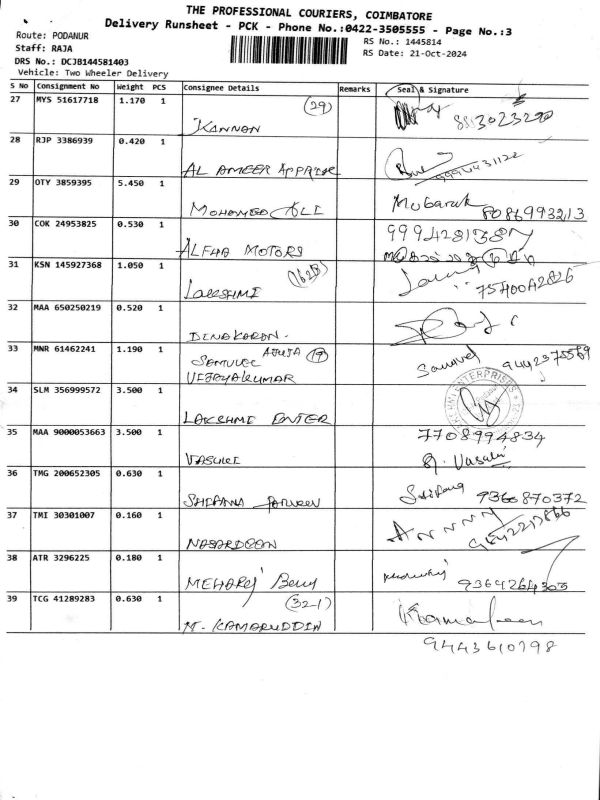 THE PROFESSIONAL COURIERS, COIMBATORE
Delivery Runsheet - PCK - Phone No.:0422-3505555 - Page No.:3
Route: PODANUR
RS No.: 1445814
Staff: RAJA
RS Date: 21-Oct-2024
DRS No.: DCJB144581403
Vehicle: Two Wheeler Delivery
S No Consignment No Weight PCS Consignee Details Remarks Seal & Signature
27 MYS 51617718 1.170 1 (29)
KANNAN
28 RJP 3386939 0.420 1
AL AMEER
29 OTY 3859395 5.450 1 Mubarak
MOHAMED ALI 8086993213
30 COK 24953825 0.530 1
ALFHA MOTORS
31 KSN 145927368 1.050 1 (162B)
LAKSHMI 7540042826
32 MAA 650250219 0.520 1
DINAKARAN-
33 MNR 61462241 1.190 1 (19)
SAMUVEL Samuvel 9442375569
VIJAYAKUMAR
34 SLM 356999572 3.500 1
LAKSHMI ENTER
35 MAA 9000053663 3.500 1 7708994834
VASUKI Vasuki
36 TMG 200652305 0.630 1
9360870372
37 TMI 30301007 0.160 1
NASARDEEN
38 ATR 3296225 0.180 1
MEHARAJ 9364264303
39 TCG 41289283 0.630 1 (32-1)
M. KAMARUDDIN
9443610798